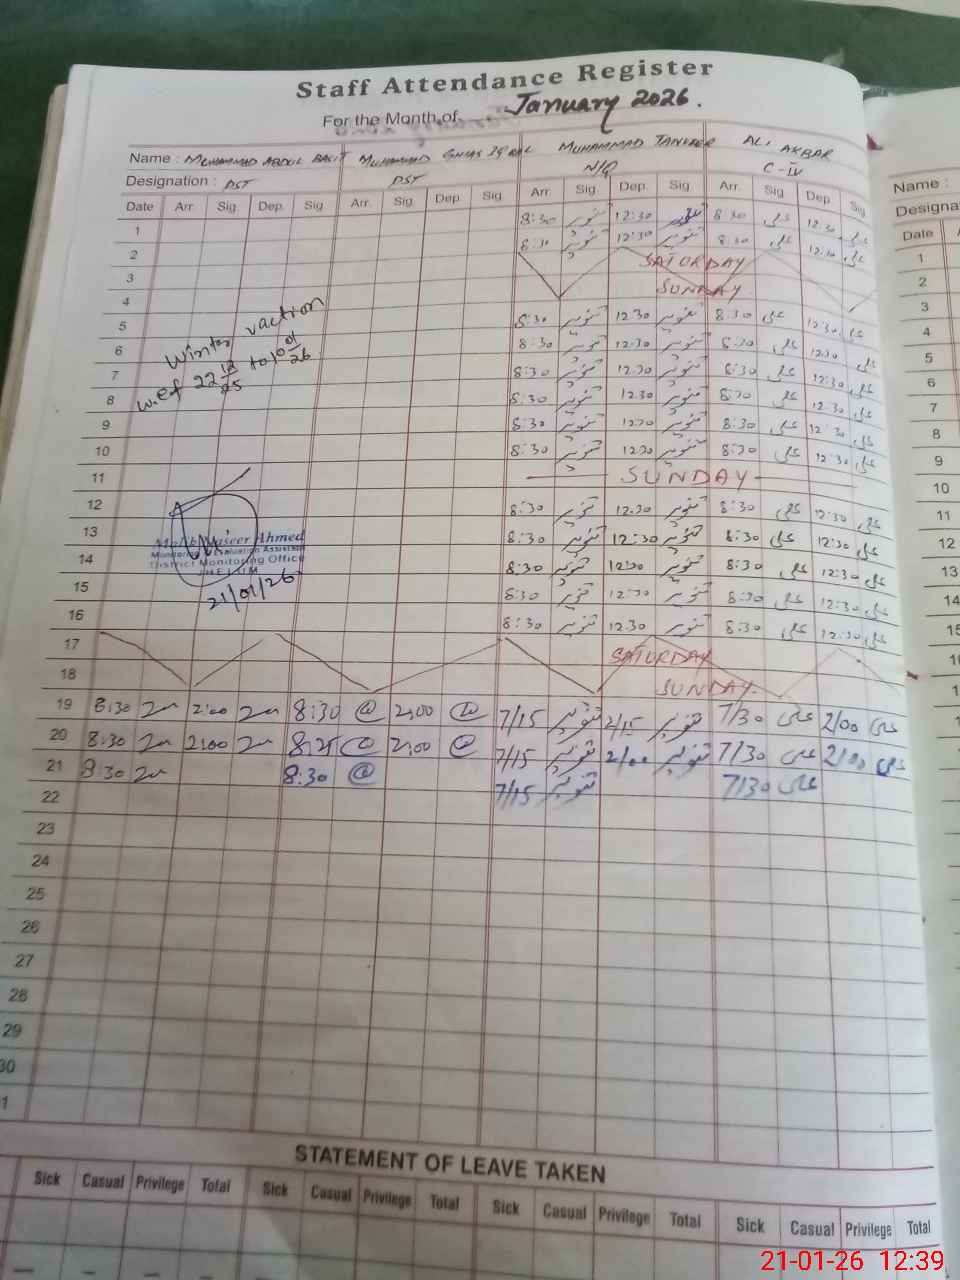 Staff Attendance Register
For the Month of January 2026.
Name : MUHAMMAD ABDUL BASIT MUHAMMAD GHIAS IQBAL MUHAMMAD TANVEER ALI AKBAR
Designation : PST PST N/Q C-IV
Date Arr. Sig. Dep. Sig Arr. Sig. Dep. Sig. Arr. Sig. Dep. Sig Arr. Sig Dep. Sig
1 8:30 تنویر 12:30 تنویر 8:30 علی 12:30 علی
2 8:30 تنویر 12:30 تنویر 8:30 علی 12:30 علی
3 SATURDAY
4 SUNDAY
5 8:30 تنویر 12:30 تنویر 8:30 علی 12:30 علی
6 8:30 تنویر 12:30 تنویر 8:30 علی 12:30 علی
7 8:30 تنویر 12:30 تنویر 8:30 علی 12:30 علی
8 8:30 تنویر 12:30 تنویر 8:30 علی 12:30 علی
9 8:30 تنویر 12:30 تنویر 8:30 علی 12:30 علی
10 8:30 تنویر 12:30 تنویر 8:30 علی 12:30 علی
Winter vaction
w.ef 22 12/25 to 10 01/26
11 SUNDAY
12 8:30 تنویر 12:30 تنویر 8:30 علی 12:30 علی
13 8:30 تنویر 12:30 تنویر 8:30 علی 12:30 علی
14 8:30 تنویر 12:30 تنویر 8:30 علی 12:30 علی
15 8:30 تنویر 12:30 تنویر 8:30 علی 12:30 علی
16 8:30 تنویر 12:30 تنویر 8:30 علی 12:30 علی
Malik Naseer Ahmed
Monitoring & Evaluation Assistant
District Monitoring Office
JHELUM
21/01/26
17 SATURDAY
18 SUNDAY
19 8:30 2:00 8:30 2:00 7/15 تنویر 2/15 تنویر 7/30 علی 2/00 علی
20 8:30 2:00 8:25 2:00 7/15 تنویر 2/00 تنویر 7/30 علی 2/00 علی
21 8:30 8:30 7/15 تنویر 7/30 علی
22
23
24
25
26
27
28
29
30
1
STATEMENT OF LEAVE TAKEN
Sick Casual Privilege Total Sick Casual Privilege Total Sick Casual Privilege Total Sick Casual Privilege Total
Name :
Designa
Date
1
2
3
4
5
6
7
8
9
10
11
12
13
14
15
21-01-26 12:39